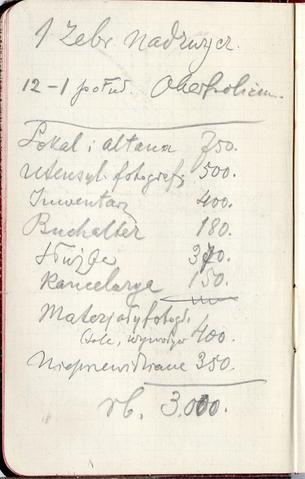 1 Zebr. Nadzwycz.
12-1 połud.
Lokal i altana 750.
Utensyl. fotografs 500.
Inwentarz 400.
Buchalter 180.
Służba 370.
Kancelarya 150.
Materjały fotogr.
400.
Nieprzewidziane 350.
rb. 3.000.